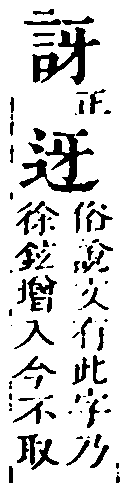 訝
正
迓
俗說文有此字乃
徐鉉增入今不取